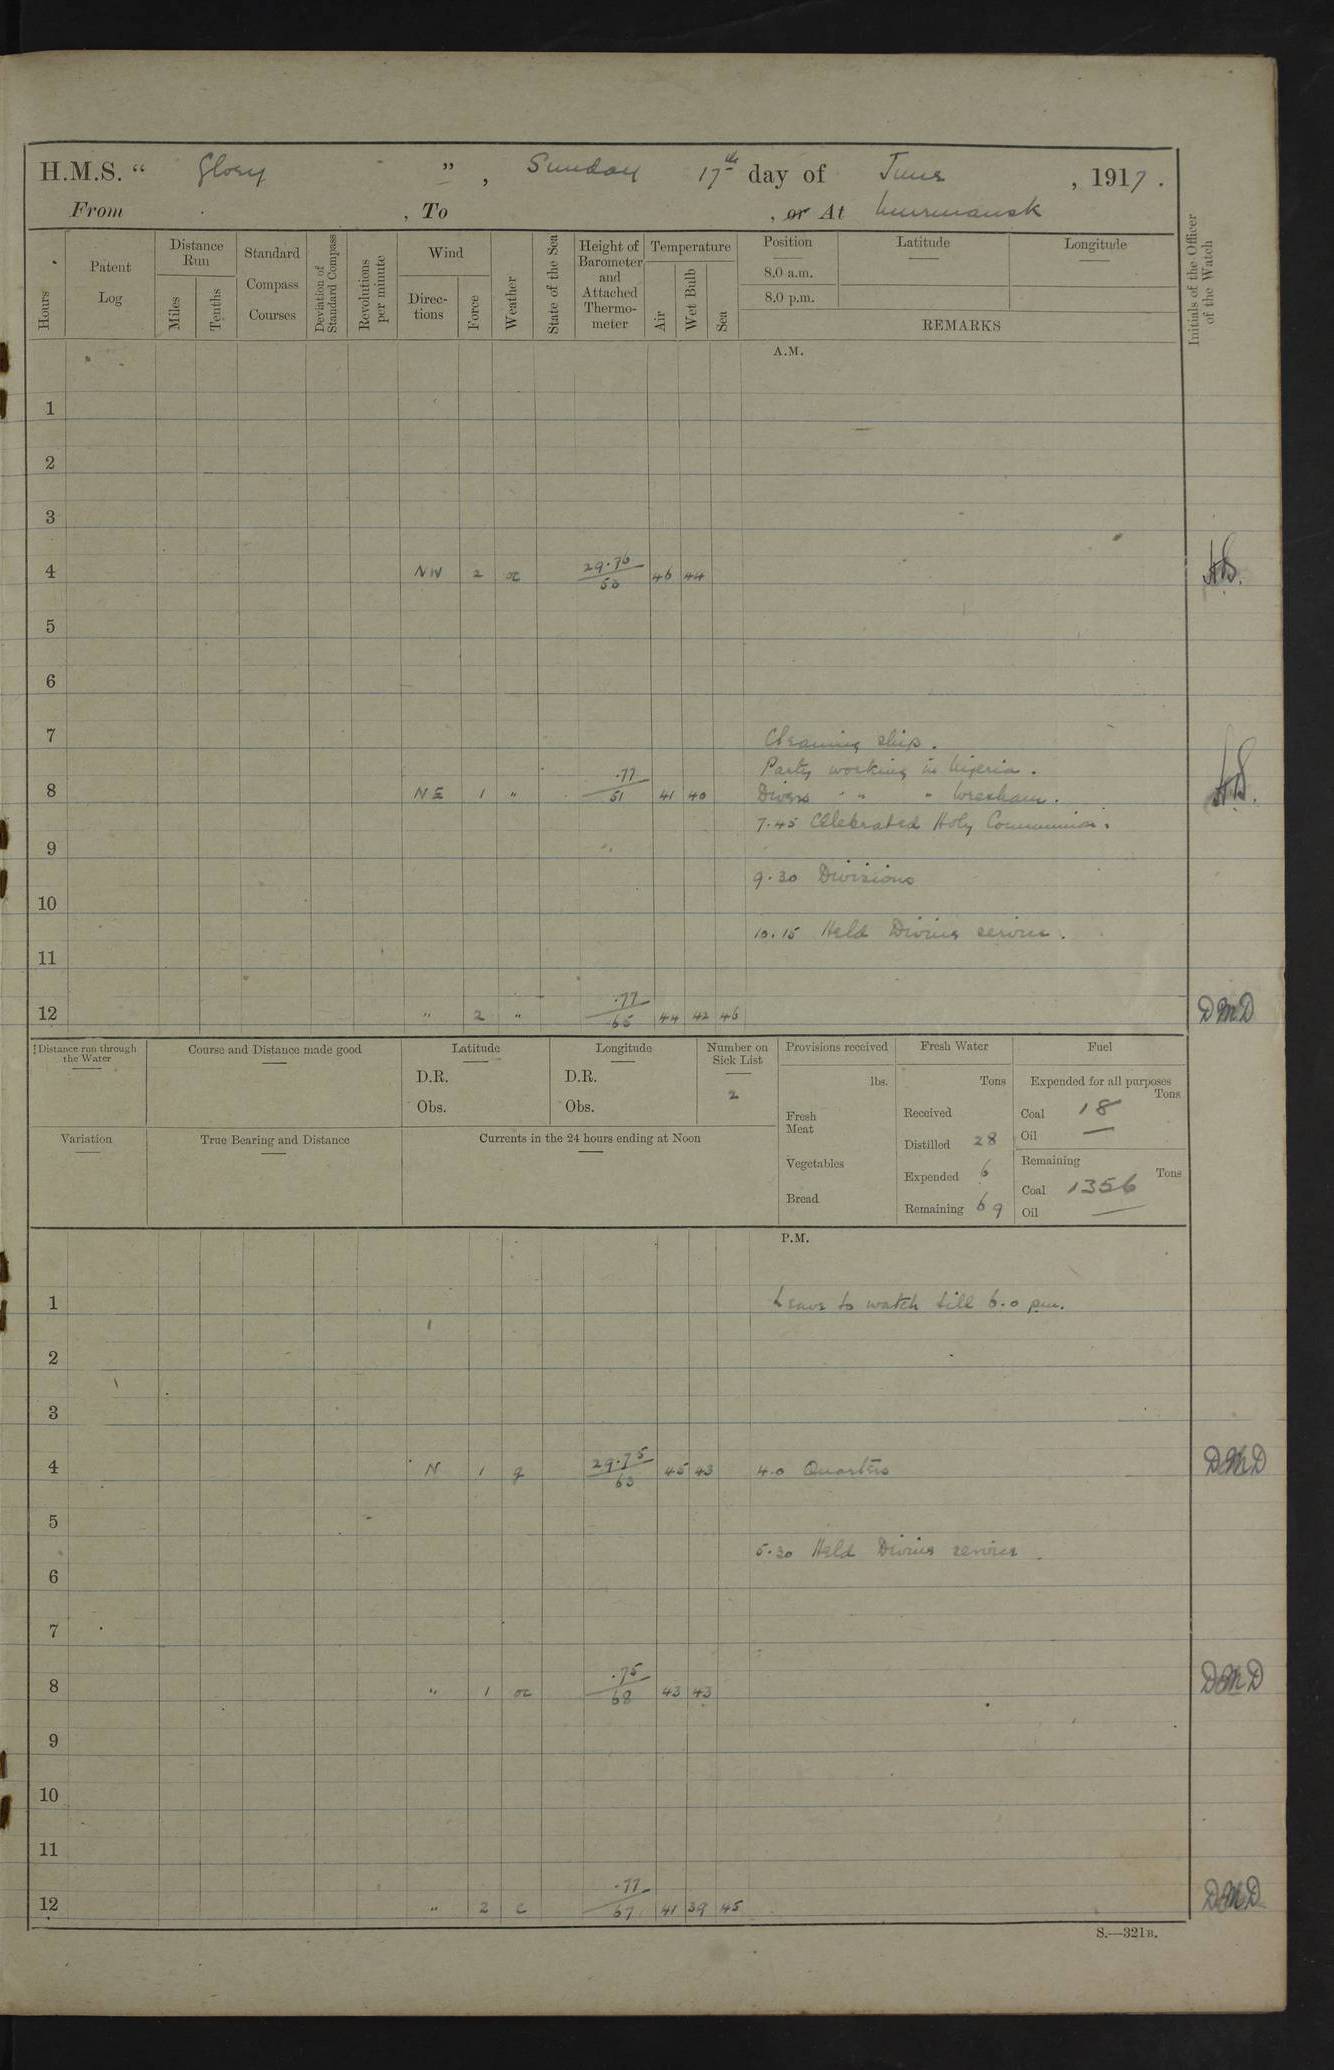 H.M.S. “ Glory ” , Sunday 17th day of June , 1917 .
From , To , or At Murmansk
Hours
Patent Log
Distance Run
Miles
Tenths
Standard Compass Courses
Deviation of Standard Compass
Revolutions per minute
Wind
Directions
Force
Weather
State of the Sea
Height of Barometer and Attached Thermometer
Temperature
Air
Wet Bulb
Sea
Position
8.0 a.m.
8.0 p.m.
Latitude
Longitude
REMARKS
Initials of the Officer of the Watch
A.M.
1
2
3
4 NW 2 oc 29.76 46 44
5
6
7 Cleaning ship.
Party working in Nigeria.
8 NE 1 " .77 51 41 40 Divers " " " Wrexham.
7.45 Celebrated Holy Communion.
9
9.30 Divisions
10
10.15 Held Divine service.
11
12 " 2 " .77 65 44 42 46 DMD
Distance run through the Water
Course and Distance made good
Latitude
D.R.
Obs.
Longitude
D.R.
Obs.
Number on Sick List
2
Provisions received
lbs.
Fresh Meat
Vegetables
Bread
Fresh Water
Tons
Received
Distilled 28
Expended 6
Remaining 69
Fuel
Expended for all purposes
Tons
Coal 18
Oil —
Remaining
Tons
Coal 1356
Oil —
Variation
True Bearing and Distance
Currents in the 24 hours ending at Noon
P.M.
1 Leave to watch till 6.0 pm.
2
3
4 N 1 29.75 63 45 43 4.0 Quarters DMD
5
5.30 Held Divine service
6
7
8 " 1 oc .75 68 43 43 DMD
9
10
11
12 " 2 c .77 67 41 39 45 DMD
S.—321B.